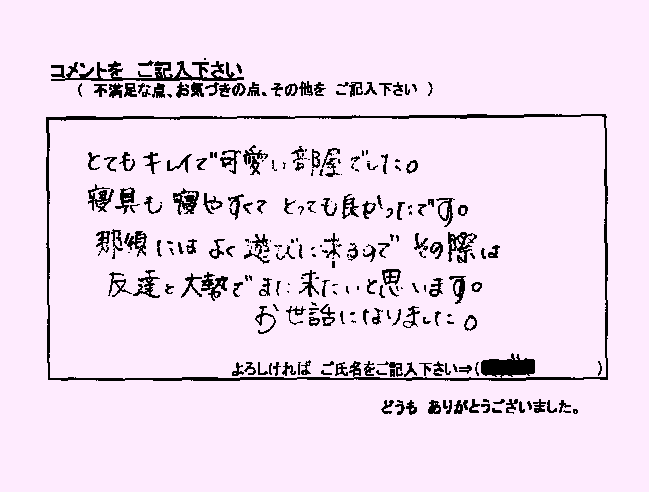 コメントを ご記入下さい
( 不満足な点、お気づきの点、その他を ご記入下さい )
とてもキレイで可愛い部屋でした。
寝具も寝やすくて とっても良かったです。
那須には よく遊びに来るので その際は
友達と大勢でまた来たいと思います。
お世話になりました。
よろしければ ご氏名をご記入下さい⇒( )
どうも ありがとうございました。